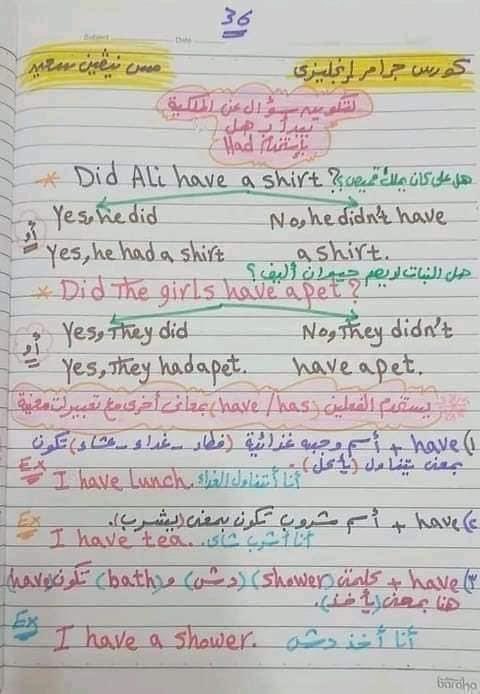 36
Subject Date
كورس جرامر إنجليزى مس نيڤين سعيد
لتكوين سؤال عن الملكية
يبدأ بـ هل
بإستخدام Had
* Did Ali have a shirt? هل على كان يملك قميص؟
Yes, he did No, he didn't have
أو
Yes, he had a shirt a shirt.
هل البنات لديهم حيوان أليف؟
* Did The girls have a pet?
Yes, They did No, They didn't
أو
Yes, They had a pet. have a pet.
يستخدم الفعلين (have/has) بمعانى أخرى مع تعبيرات معينة
١) have + أسم وجبه غذائية (فطار - غداء - عشاء) تكون
بمعنى يتناول (يأكل).
Ex I have Lunch. أنا أتناول الغداء
٢) have + أسم مشروب تكون بمعنى (يشرب).
Ex
I have tea. أنا أشرب شاى.
٣) have + كلمتى (shower) (دش) و (bath) تكون (have)
هنا بمعنى (يأخذ).
Ex
I have a shower. أنا أخذ دش
baraha